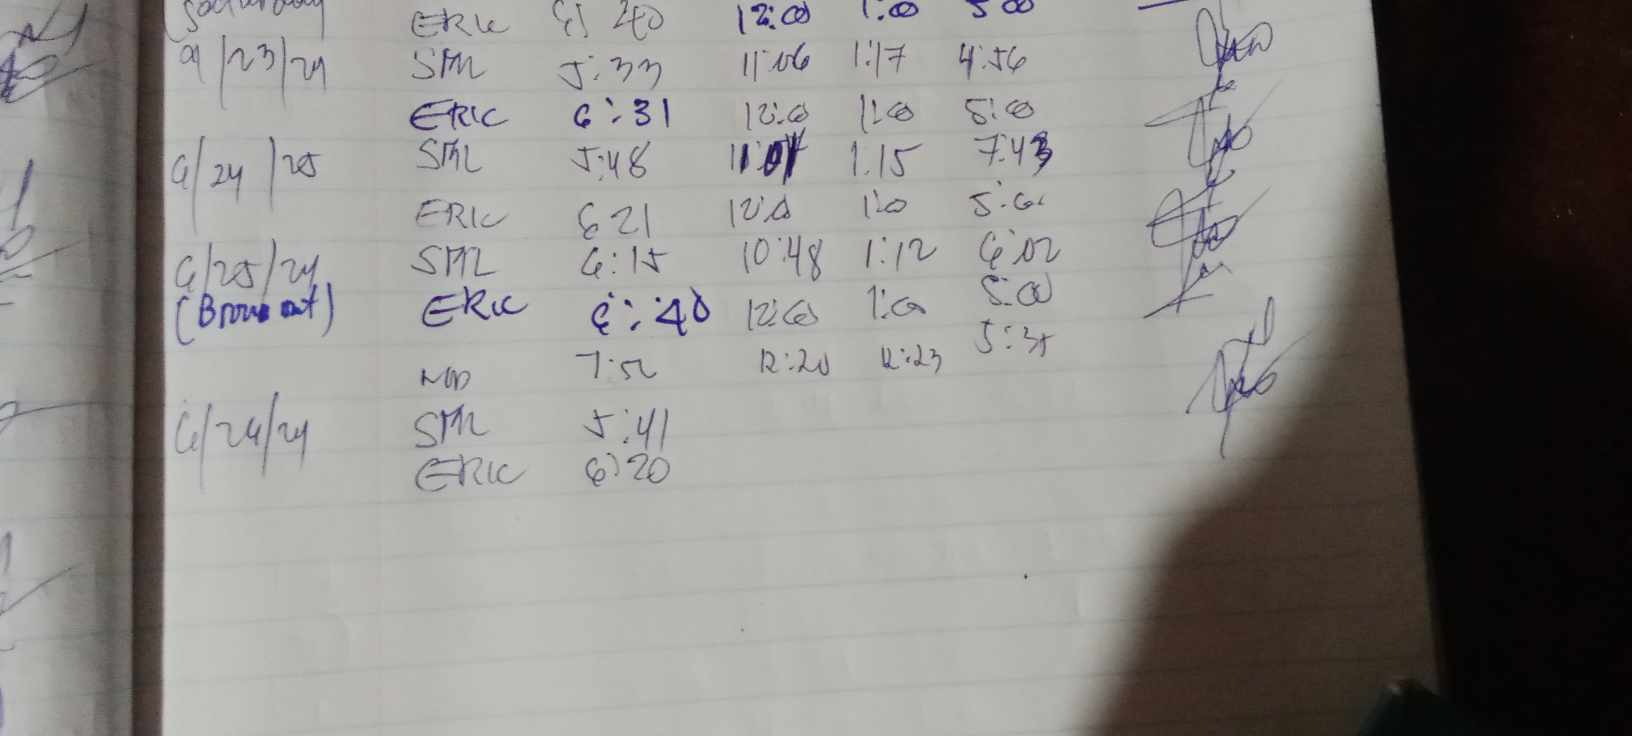 (Saturday)
ERIC 6:40 12:00 1:00 5:00
9/23/24 SML 5:33 11:06 1:17 4:56
ERIC 6:31 12:00 1:00 5:00
9/24/25 SML 5:48 1:15 7:43
ERIC 6:21 12:00 1:00 5:00
9/25/24 SML 6:15 10:48 1:12 6:02
(Brown out) ERIC 6:40 12:00 1:00 5:00
7:52 12:20 12:23 5:35
SML 5:41
ERIC 6:20